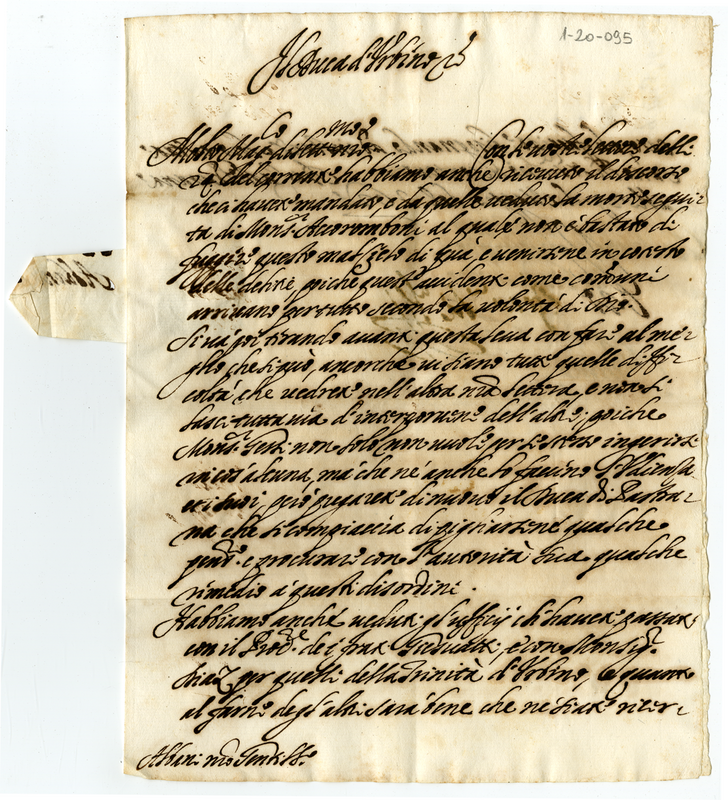 1-20-095
Il Duca d'Urbino &c.
Molto Mag.co diletmo nro. Con le vostre lettere delli
del corrente habbiamo anche ricevuto il discorso
che ci havete mandato, e da quelle veduto la morte segui-
ta di Mons.r Accoromboni al quale non è bastato di
fugire questo mal di quà, e venirsene in cotesto
delle delitie, poiche quest' accidenti come communi
arrivano per tutto secondo la volontà di Dio.
Si và poi tirando avanti questa leva con fare al me-
glio che si può, ancorche vi siano tutte quelle diffi-
coltà che vedrete nell' altra nra lettera, e non si
lasci tuttavia d'interporvene dell' altre, poiche
Mons.r non solo non vuole per se stesso ingerirsi
in cosa alcuna, ma che nè anche lo faccino
et i suoi, però pregarete di nuovo il Duca di Pastra-
na che si compiaccia di pigliarsene qualche
pens.ro e procurare con l'autorità sua qualche
rimedio a questi disordini.
Habbiamo anche veduti gl'ufficij ch'havete passati
con il de i frati e con Monsig.r
Diaz per quelli della Trinità d'Urbino, e quanto
al farne degl'altri sarà bene che ne siate riter-